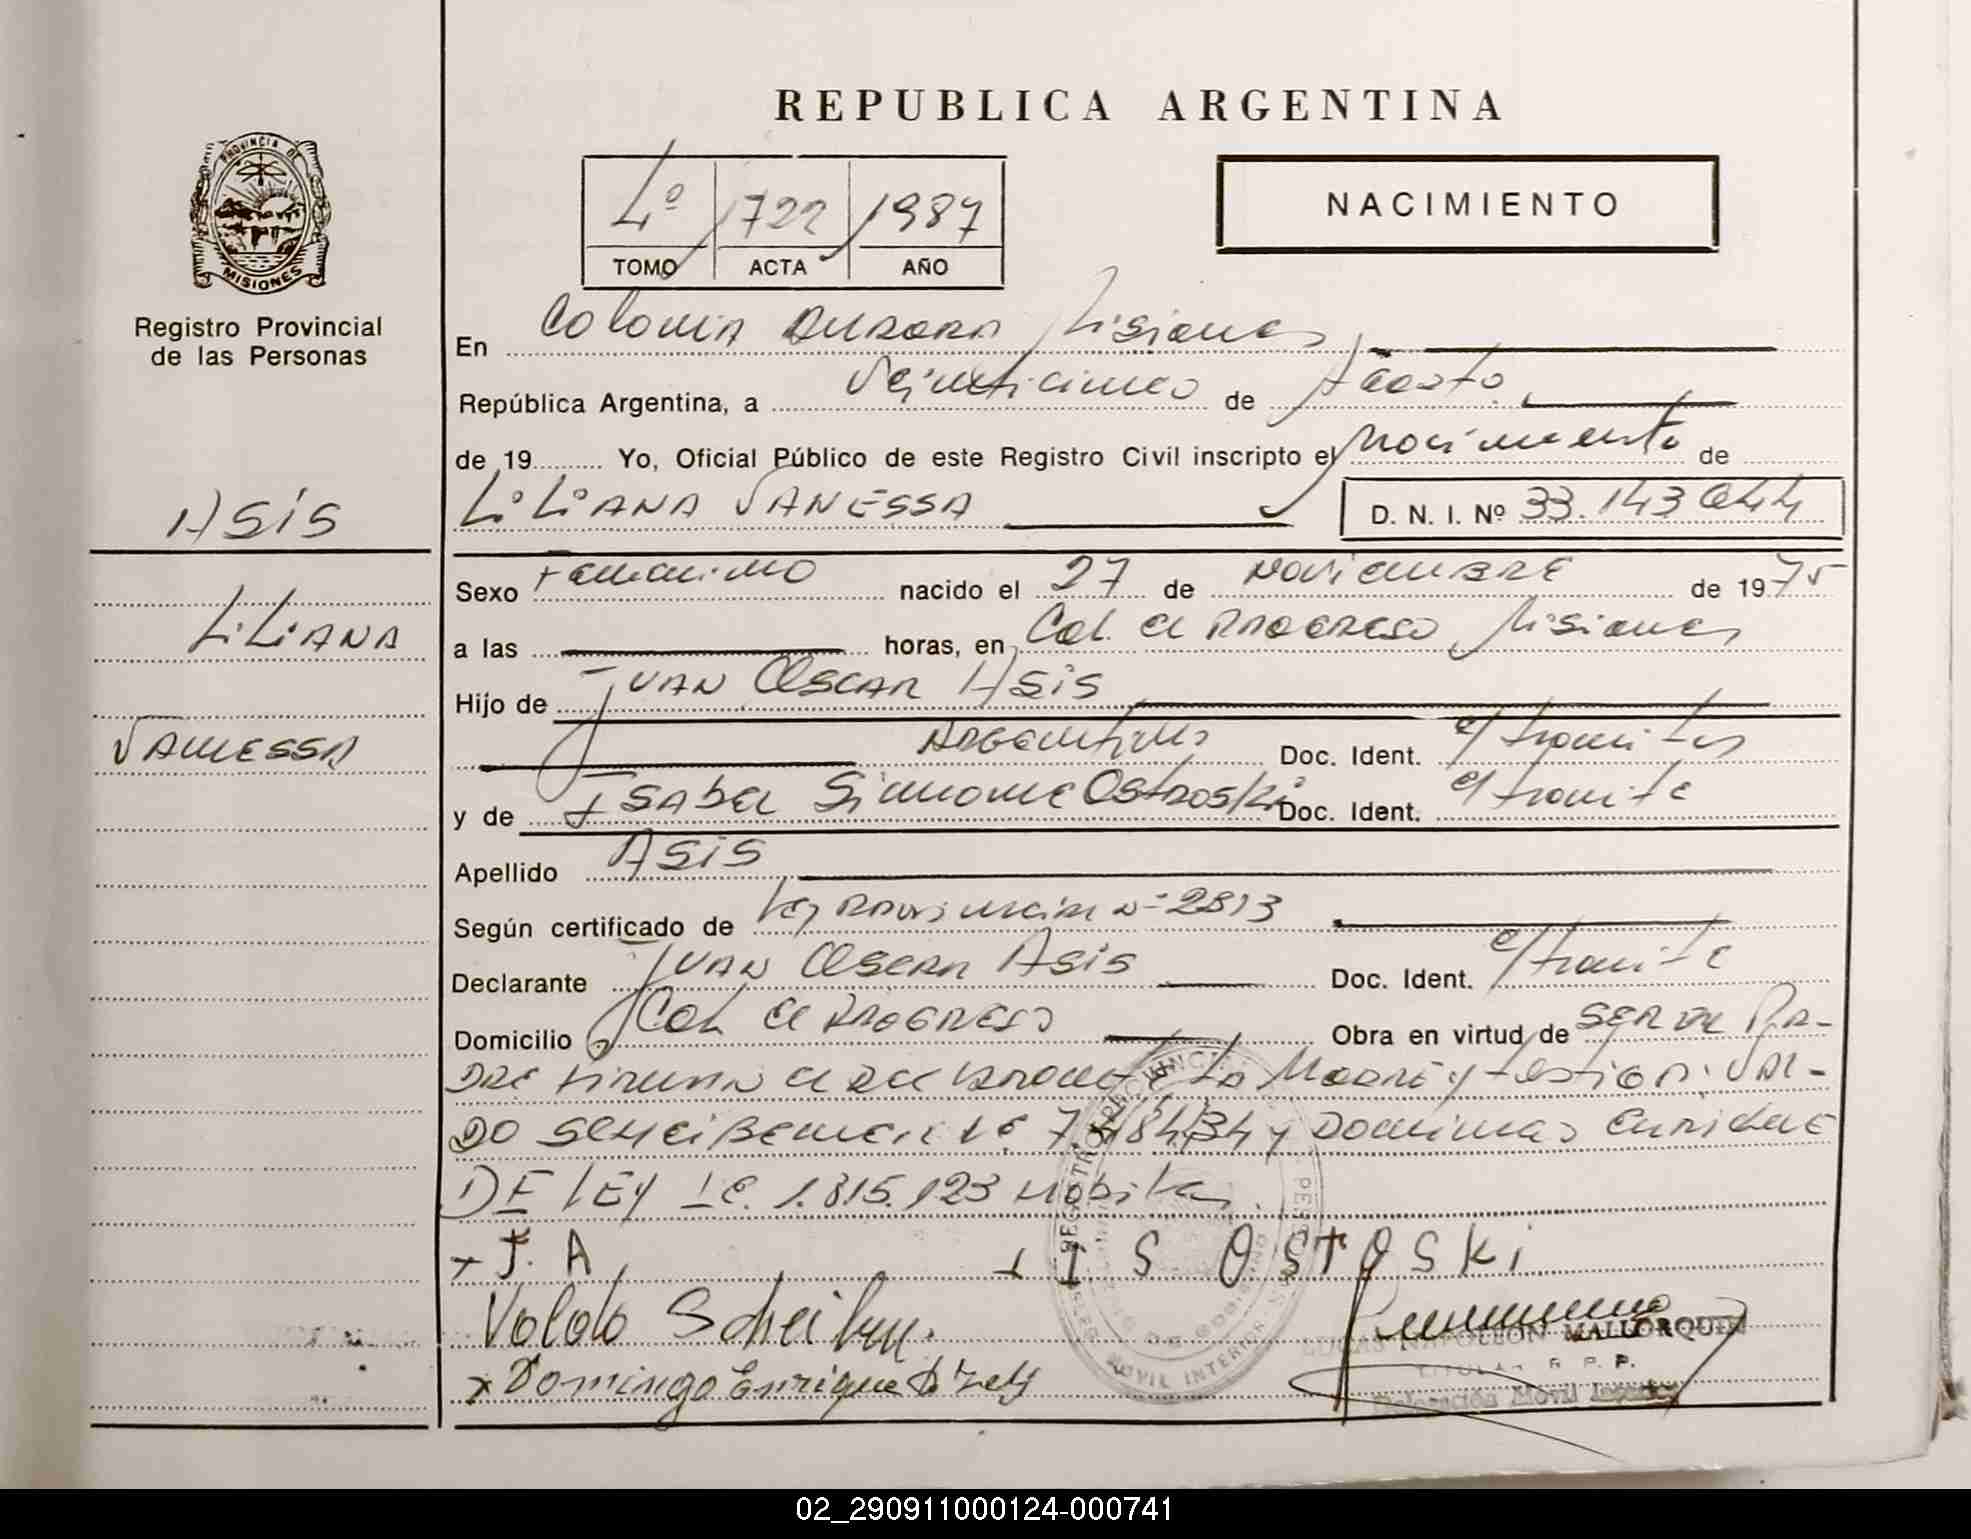 REPUBLICA ARGENTINA
PROVINCIA DE
MISIONES
Registro Provincial
de las Personas
4º 1722 1987
TOMO ACTA AÑO
NACIMIENTO
En Colonia Aurora Misiones
República Argentina, a Veinticinco de Agosto
de 19 Yo, Oficial Público de este Registro Civil inscripto el Nacimiento de
Liliana Vanessa D. N. I. Nº 33.143.044
Asís
Liliana
Vanessa
Sexo Femenino nacido el 27 de Noviembre de 1975
a las horas, en Col. el Progreso Misiones
Hijo de Juan Oscar Asis
Argentino Doc. Ident. e/ tramites
y de Isabel Simnome Ostroski Doc. Ident. e/ tramite
Apellido Asis
Según certificado de Ley Provincial Nº 2813
Declarante Juan Oscar Asis Doc. Ident. e/ tramite
Domicilio Col. el Progreso Obra en virtud de ser el Pa-
dre firman el declarante la Madre y testigos: Val-
do y Domingo Enrique
DE LEY I C. 1.815.123
+ J. A + I S OSTOSKi
Valdo
x Domingo Enrique
LUCAS NAPOLEON MALLORQUIN
TITULAR R. P. P.
Delegación Móvil
MOVIL INTERIOR
02_290911000124-000741